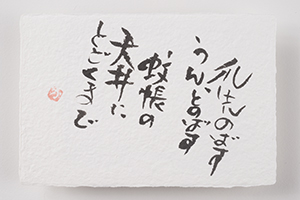 爪はんのばす
うんとのばす
蚊帳の
天井に
とどくまで